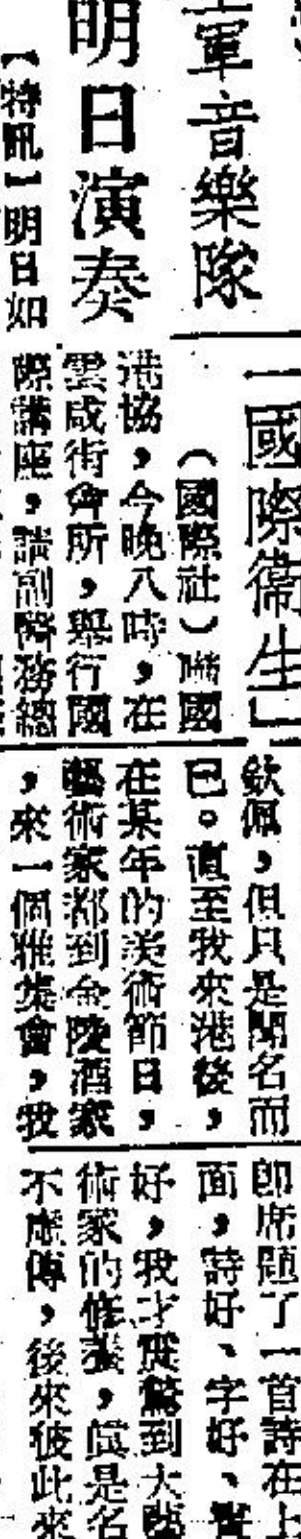 軍音樂隊
明日演奏
【特訊】明日如
「國際衞生」
（國際社）嚹國
港協，今晚八時，在
雲咸街會所，舉行國
際講座，請副醫務總
欽佩，但只是聞名而
已。直至我來港後，
在某年的美術節日，
藝術家都到金陵酒家
，來一個雅集會，我
卽席題了一首詩在上
面，詩好、字好、
好，我才震驚到大
術家的修養，眞是名
不虛傳，後來彼此來